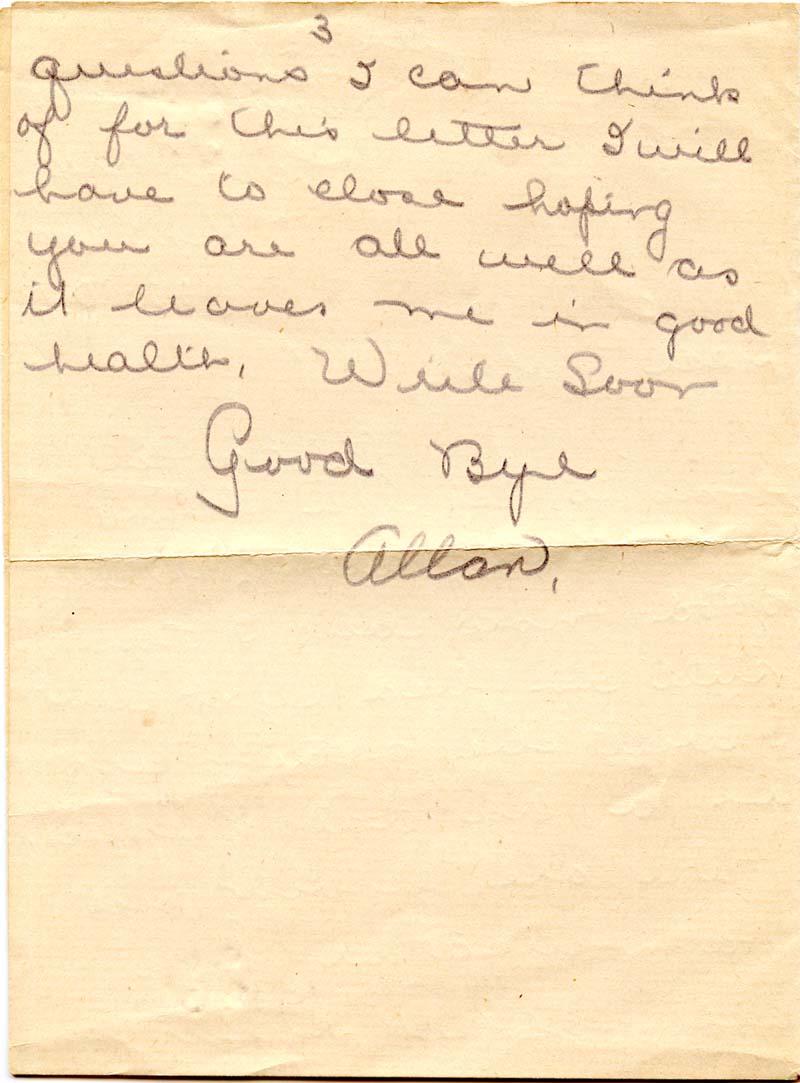 3
questions I can think
of for this letter I will
have to close hoping
you are all well as
it leaves me in good
health. Write Soon
Good Bye
Allan,